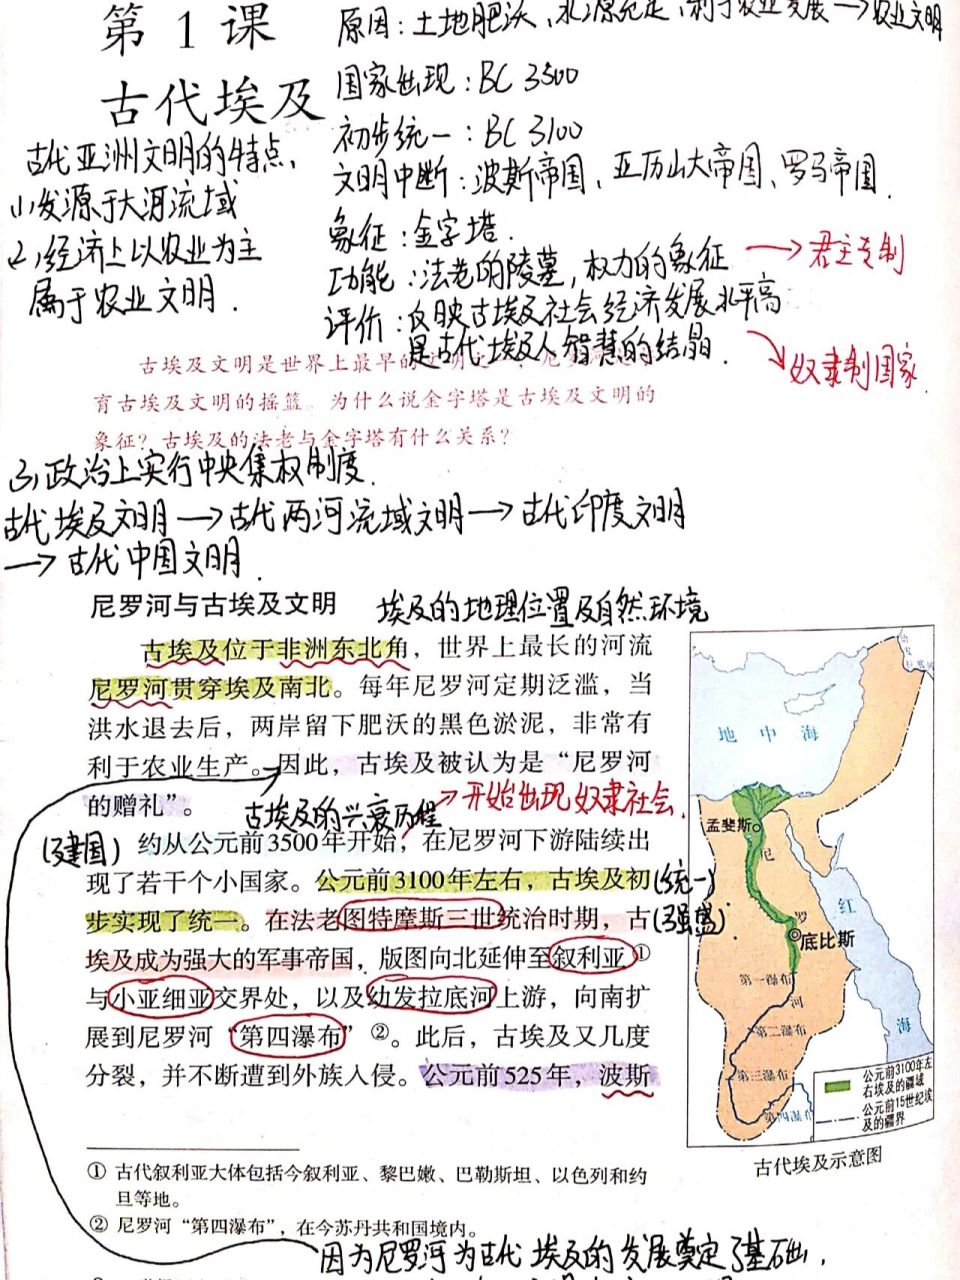 第 1 课
古代埃及
原因：土地肥沃、水源充足，利于农业发展→农业文明
国家出现：BC 3500
初步统一：BC 3100
文明中断：波斯帝国、亚历山大帝国、罗马帝国.
象征：金字塔.
功能：法老的陵墓，权力的象征 → 君主专制
评价：反映古埃及社会经济发展水平高
是古代埃及人智慧的结晶.
奴隶制国家.
古代亚洲文明的特点.
(1)发源于大河流域
(2)经济上以农业为主
属于农业文明.
古埃及文明是世界上最早的文明之一，尼罗河
育古埃及文明的摇篮。为什么说金字塔是古埃及文明的
象征？古埃及的法老与金字塔有什么关系？
(3)政治上实行中央集权制度.
古代埃及文明→古代两河流域文明→古代印度文明
→古代中国文明.
尼罗河与古埃及文明
埃及的地理位置及自然环境
古埃及位于非洲东北角，世界上最长的河流
尼罗河贯穿埃及南北。每年尼罗河定期泛滥，当
洪水退去后，两岸留下肥沃的黑色淤泥，非常有
利于农业生产。因此，古埃及被认为是“尼罗河
的赠礼”。
古埃及的兴衰历程
→开始出现奴隶社会.
(建国)
约从公元前3500年开始，在尼罗河下游陆续出
现了若干个小国家。公元前3100年左右，古埃及初
(统一)
步实现了统一。在法老图特摩斯三世统治时期，古
(强盛)
埃及成为强大的军事帝国，版图向北延伸至叙利亚①
与小亚细亚交界处，以及幼发拉底河上游，向南扩
展到尼罗河“第四瀑布”②。此后，古埃及又几度
分裂，并不断遭到外族人侵。公元前525年，波斯
地中海
孟斐斯
尼
罗
底比斯
红
第一瀑布
河
第二瀑布
海
第三瀑布
第四瀑布
公元前3100年左
右埃及的疆域
公元前15世纪埃
及的疆界
古代埃及示意图
① 古代叙利亚大体包括今叙利亚、黎巴嫩、巴勒斯坦、以色列和约
旦等地。
② 尼罗河“第四瀑布”，在今苏丹共和国境内。
因为尼罗河为古代埃及的发展奠定了基础.